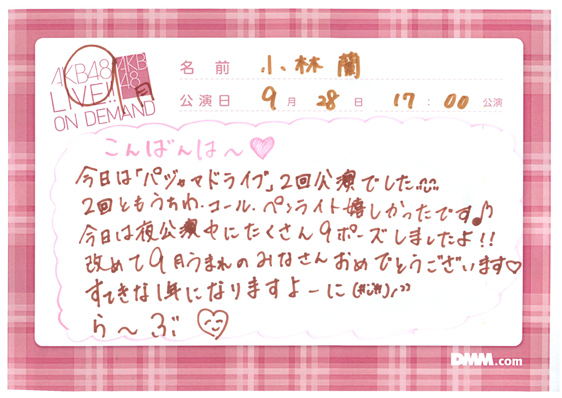 AKB48
LIVE!!
ON DEMAND
AKB
48
名前 小林蘭
公演日 9月28日 17:00公演
こんばんは〜♡
今日は「パジャマドライブ」2回公演でした
2回ともうちわ、コール、ペンライト嬉しかったです♪
今日は夜公演中にたくさん9ポーズしましたよ!!
改めて9月うまれのみなさんおめでとうございます♡
すてきな1年になりますよーに
ら〜ぶ
DMM.com